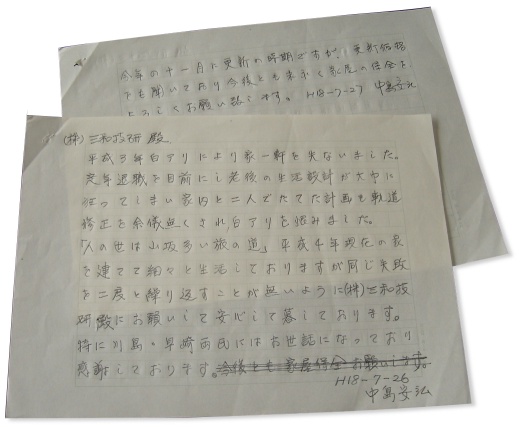 今年の十一月に更新の時期ですが、更新価格
でも聞いており今後とも末永く家屋の保全を
よろしくお願い致します。 H18-7-27 中島
(株)三和技研 殿
平成3年白アリにより家一軒を失ないました。
定年退職を目前にし老後の生活設計が大巾に
狂ってしまい家内と二人でたてた計画も軌道
修正を余儀無くされ白アリを恨みました。
「人の世は山坂多い旅の道」平成4年現在の家
を建てて細々と生活しておりますが同じ失敗
を二度と繰り返すことが無いように(株)三和技
研殿にお願いして安心して暮しております。
特に川島・黒崎両氏にはお世話になっており
感謝しております。今後とも家屋保全お願いします。
H18-7-26
中島